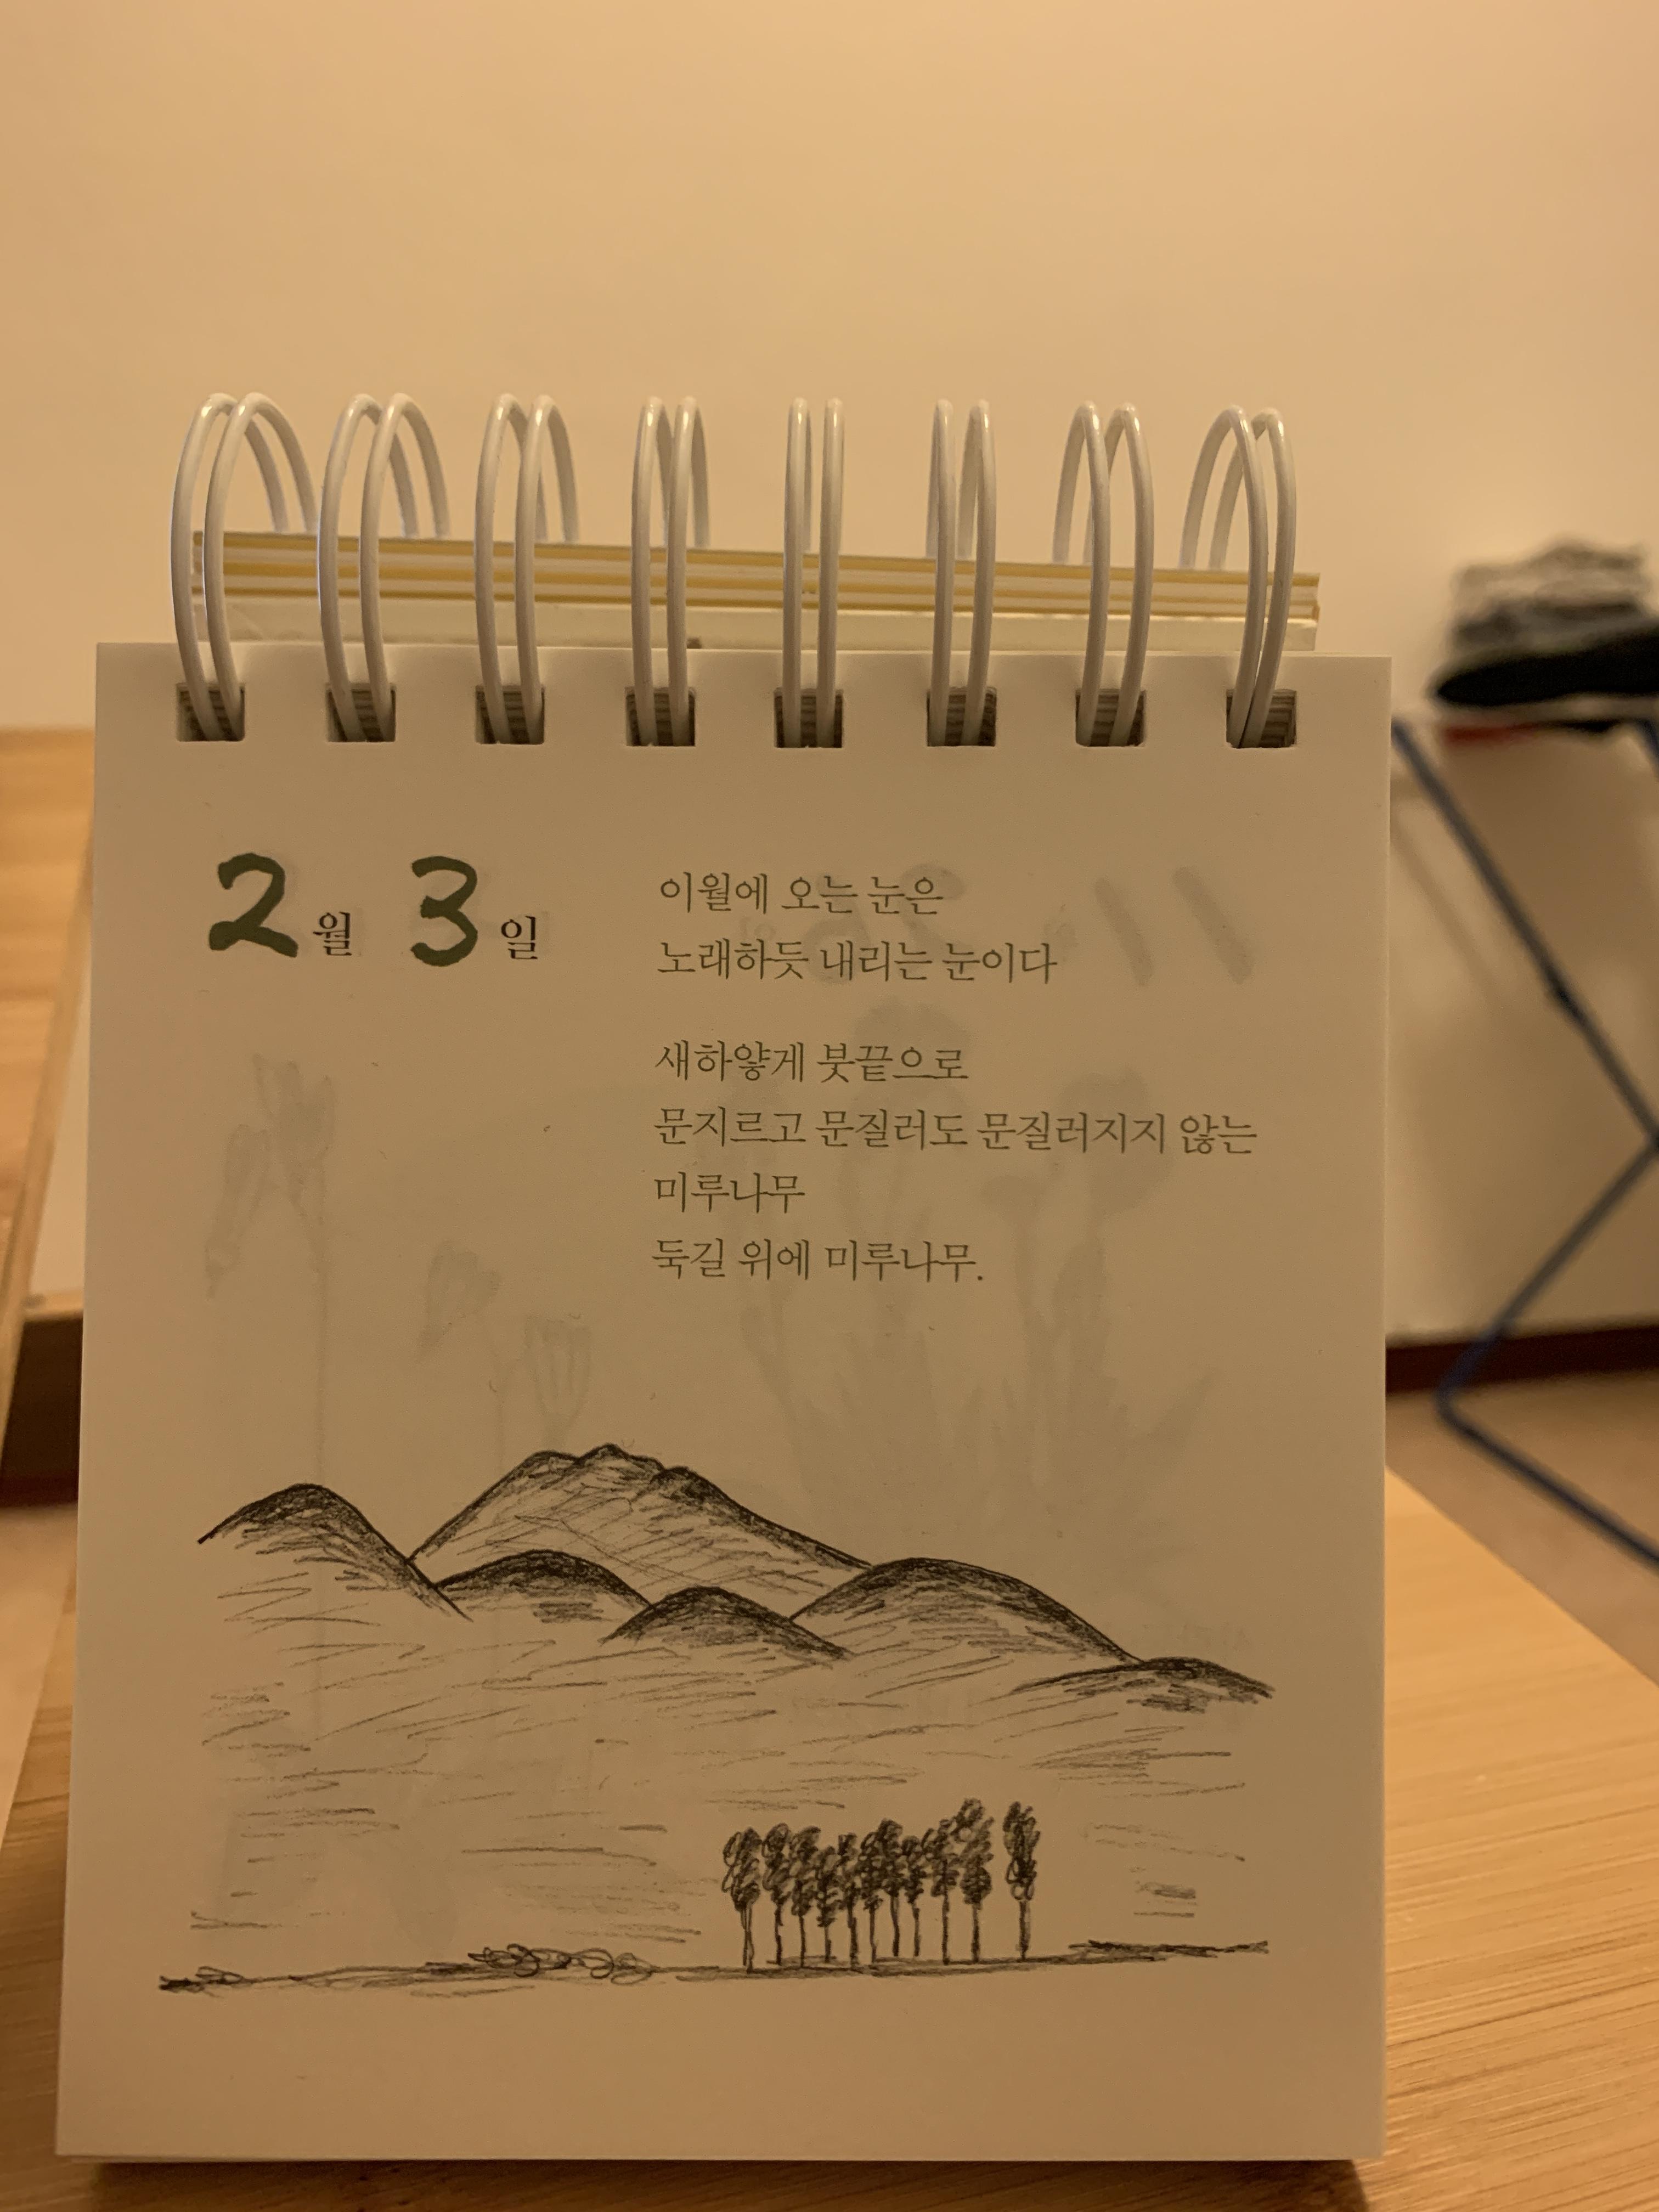 2월 3일
이월에 오는 눈은
노래하듯 내리는 눈이다
새하얗게 붓끝으로
문지르고 문질러도 문질러지지 않는
미루나무
둑길 위에 미루나무.